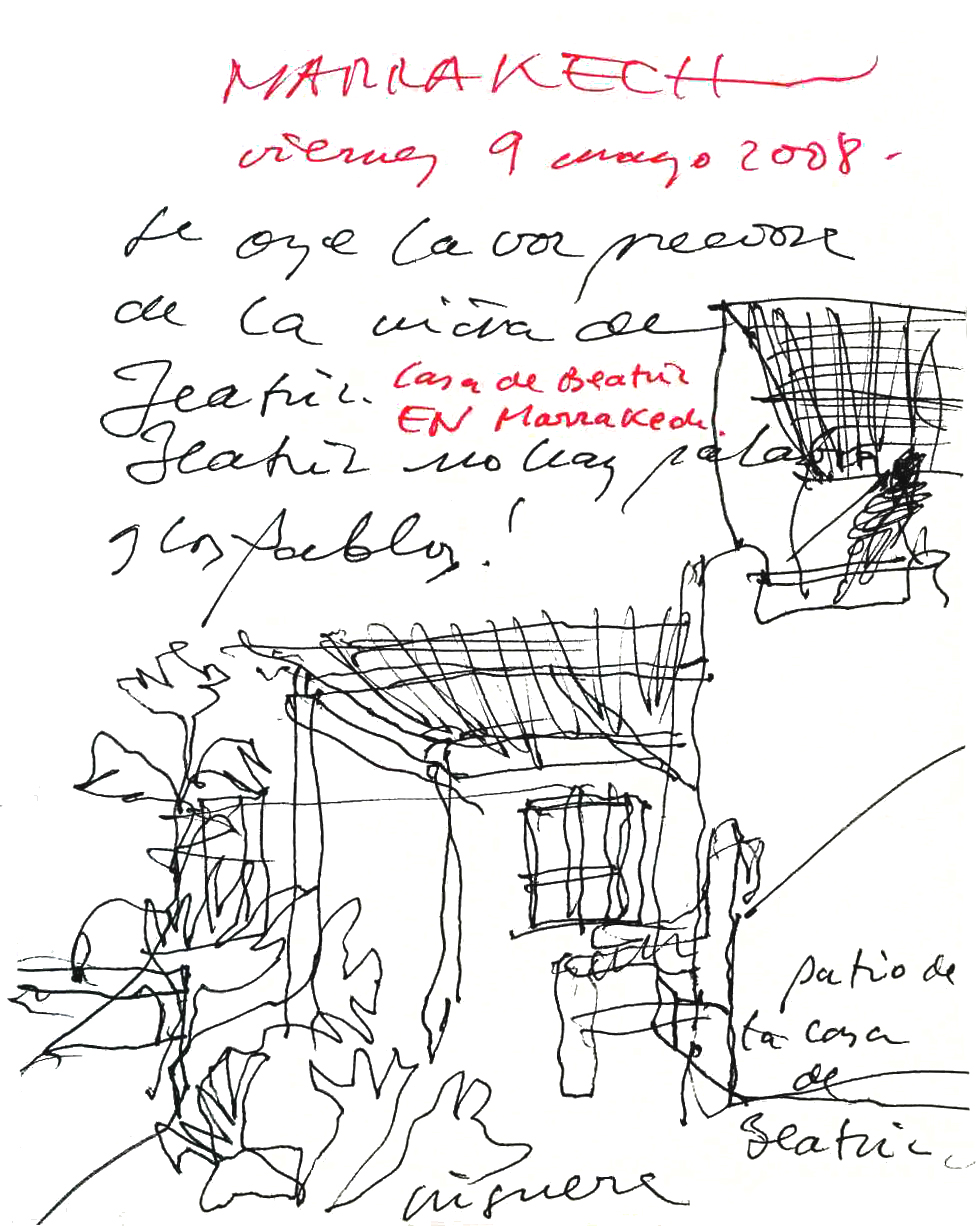 MARRAKECH
viernes 9 mayo 2008.
se oye la voz precoze
de la niña de
Beatriz.
Casa de Beatriz
EN Marrakech.
Beatriz no hay palabra
y los pablos!
patio de
la casa
de
Beatriz
higuera